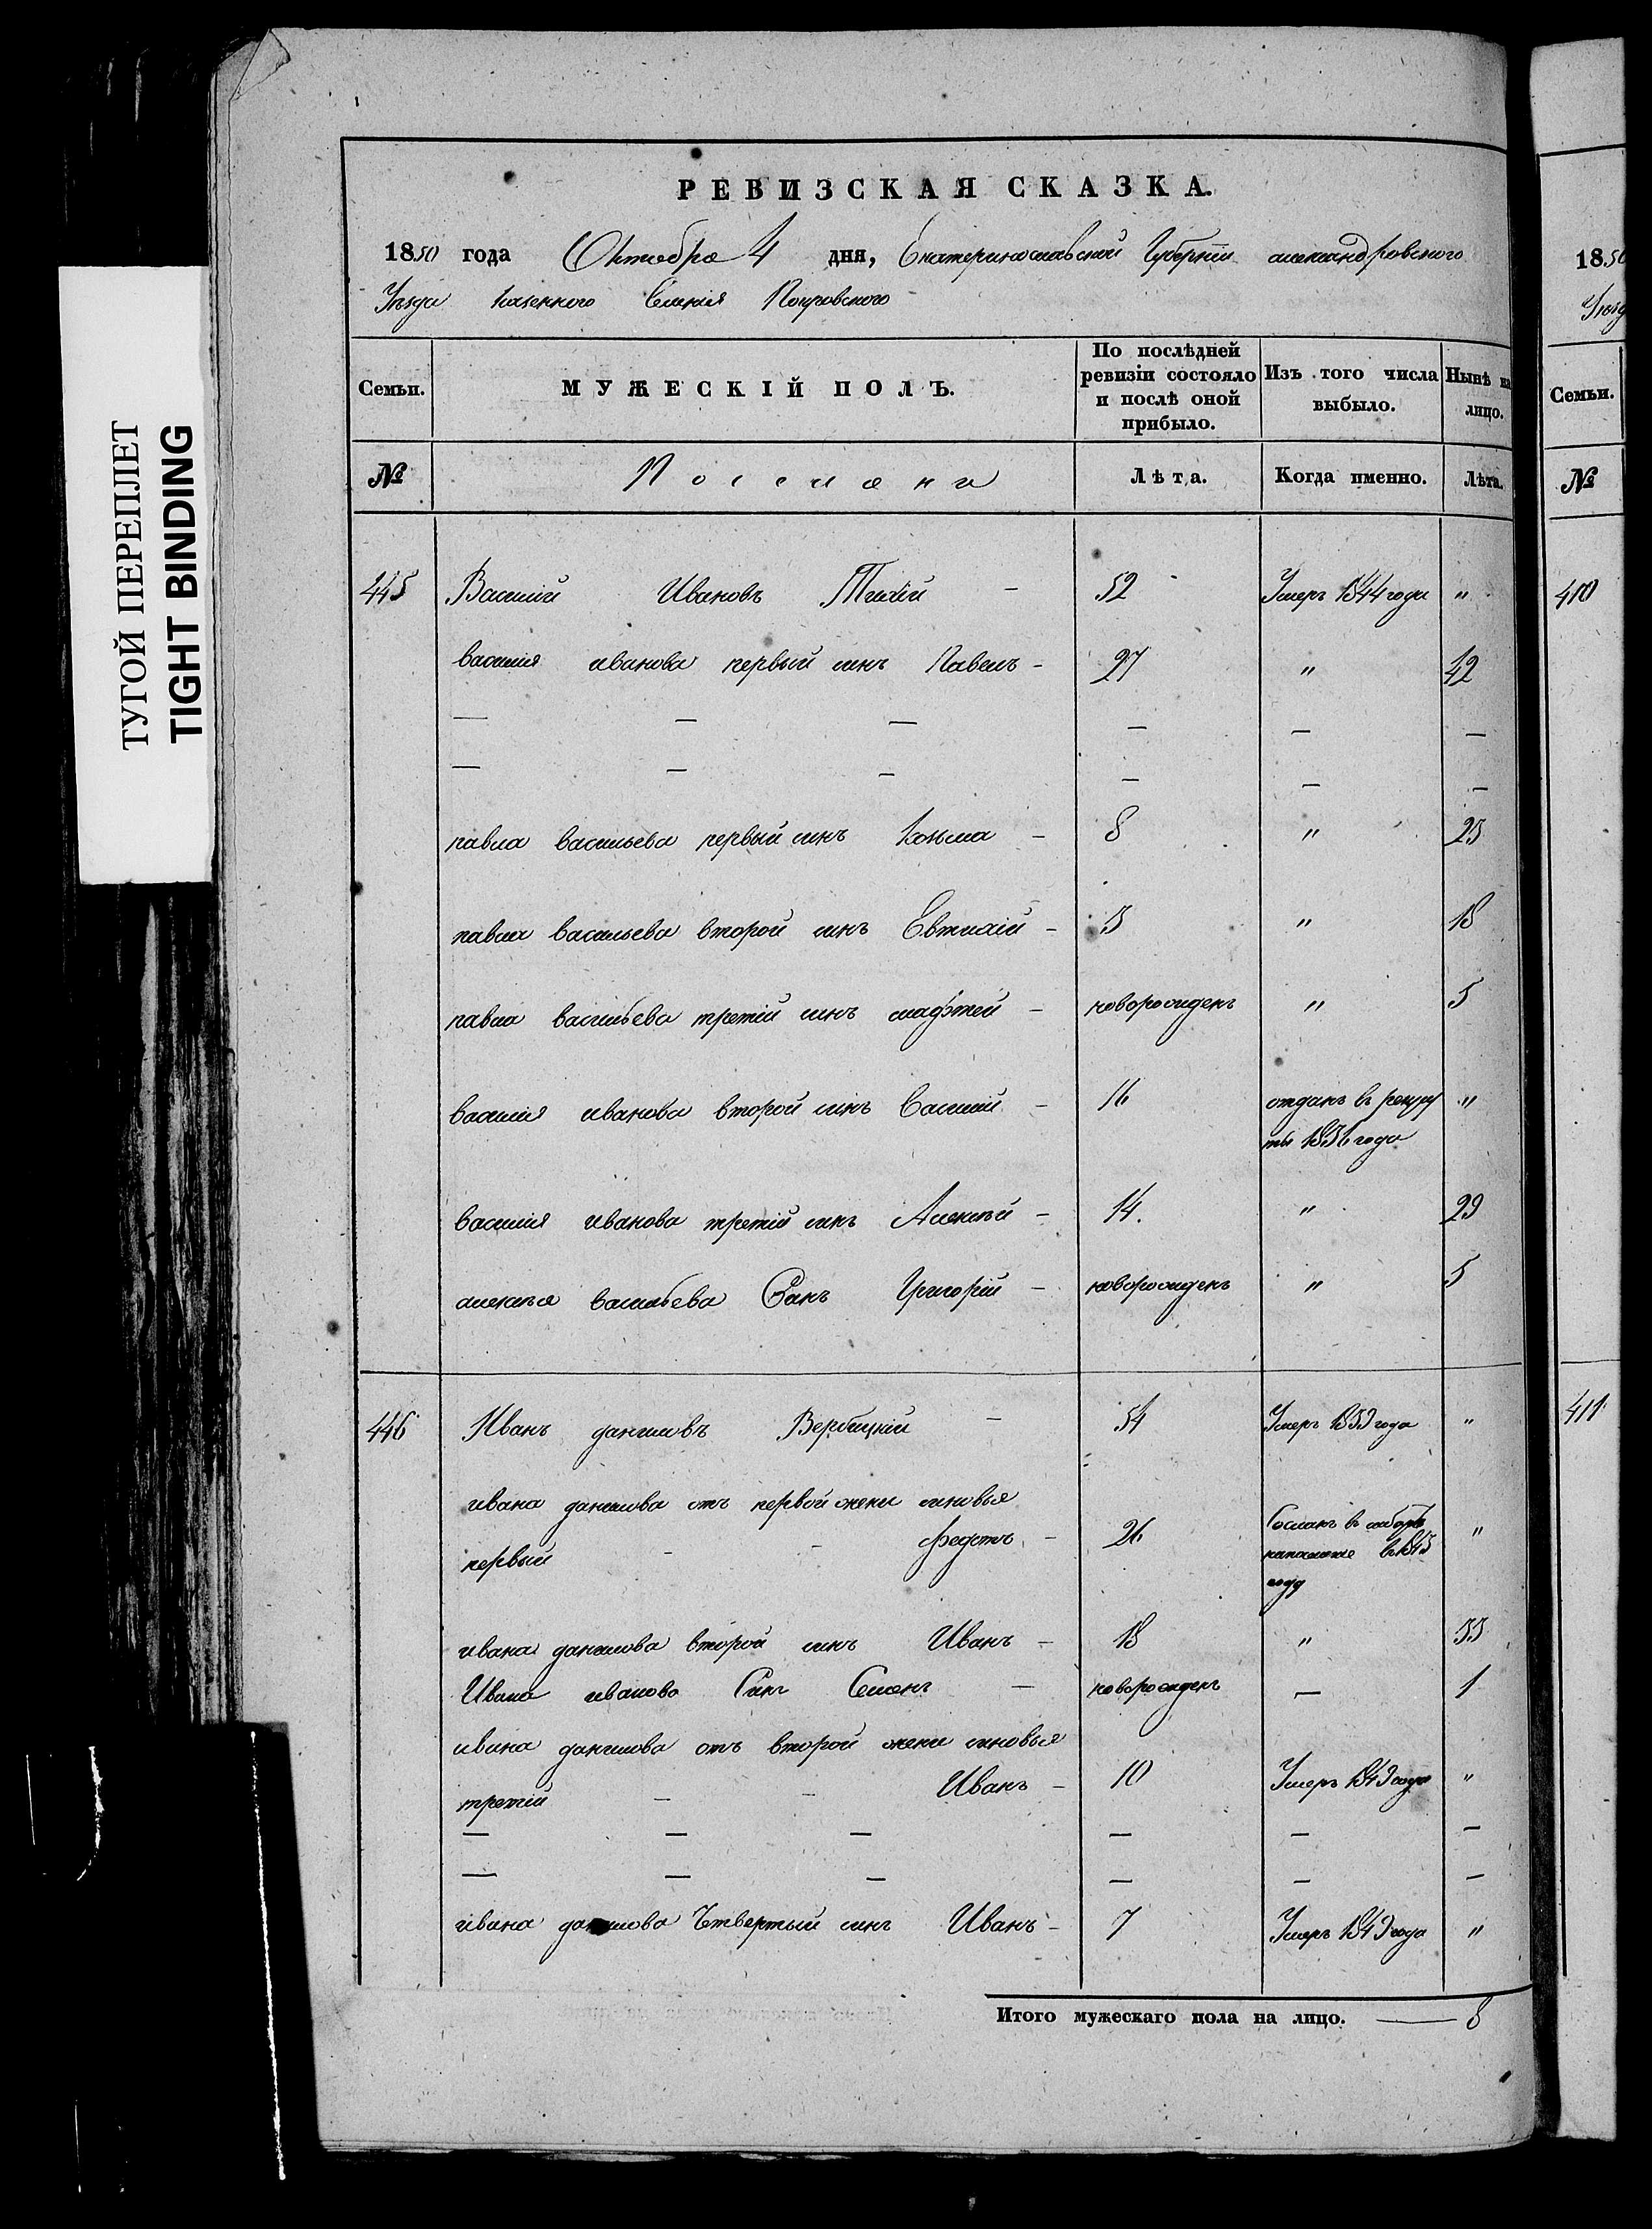 ТУГОЙ ПЕРЕПЛЕТ
TIGHT BINDING
РЕВИЗСКАЯ СКАЗКА.
1850 года Октября 4 дня, Екатеринославской Губернии александровского
Уезда казенного Селения Покровского
Семьи. МУЖЕСКІЙ ПОЛЪ. По послѣдней ревизіи состояло и послѣ оной прибыло. Изъ того числа выбыло. Нынѣ на лицо.
№ Поселяни Лѣта. Когда именно. Лѣта.
445 Василий Ивановъ Тихій - 52 Умеръ 1844 года "
василія иванова первый синъ Павелъ - 27 " 42
— — — — — —
— — — — — —
павла васильева первый синъ Козьма - 8 " 23
павла васильева второй синъ Евтихій - 3 " 18
павла васильева третій синъ - новорожденъ " 5
василія иванова второй синъ Василий - 16 отданъ в рекру "
ты 1836 года
василія иванова третій синъ Алексѣй - 14. " 29
алексѣя васильева Синъ Григорій - новорожденъ " 5
446 Иванъ даниловъ Вербицкий - 54 Умеръ 1839 года "
ивана данилова отъ первой жени синовья
первый - - Федотъ - 26 Сосланъ в
в 1843 "
году
ивана данилова второй синъ Иванъ - 18 " 33
Ивана иванова Синъ Семенъ — новорожденъ — 1
ивана данилова отъ второй жени синовья
третій - - Иванъ - 10 Умеръ 1849 года "
— — — — — —
— — — — — —
ивана данилова Четвертый синъ Иванъ - 7 Умеръ 1849 года "
Итого мужескаго пола на лицо. — 8
1850
Уезд
Семьи.
№
410
411